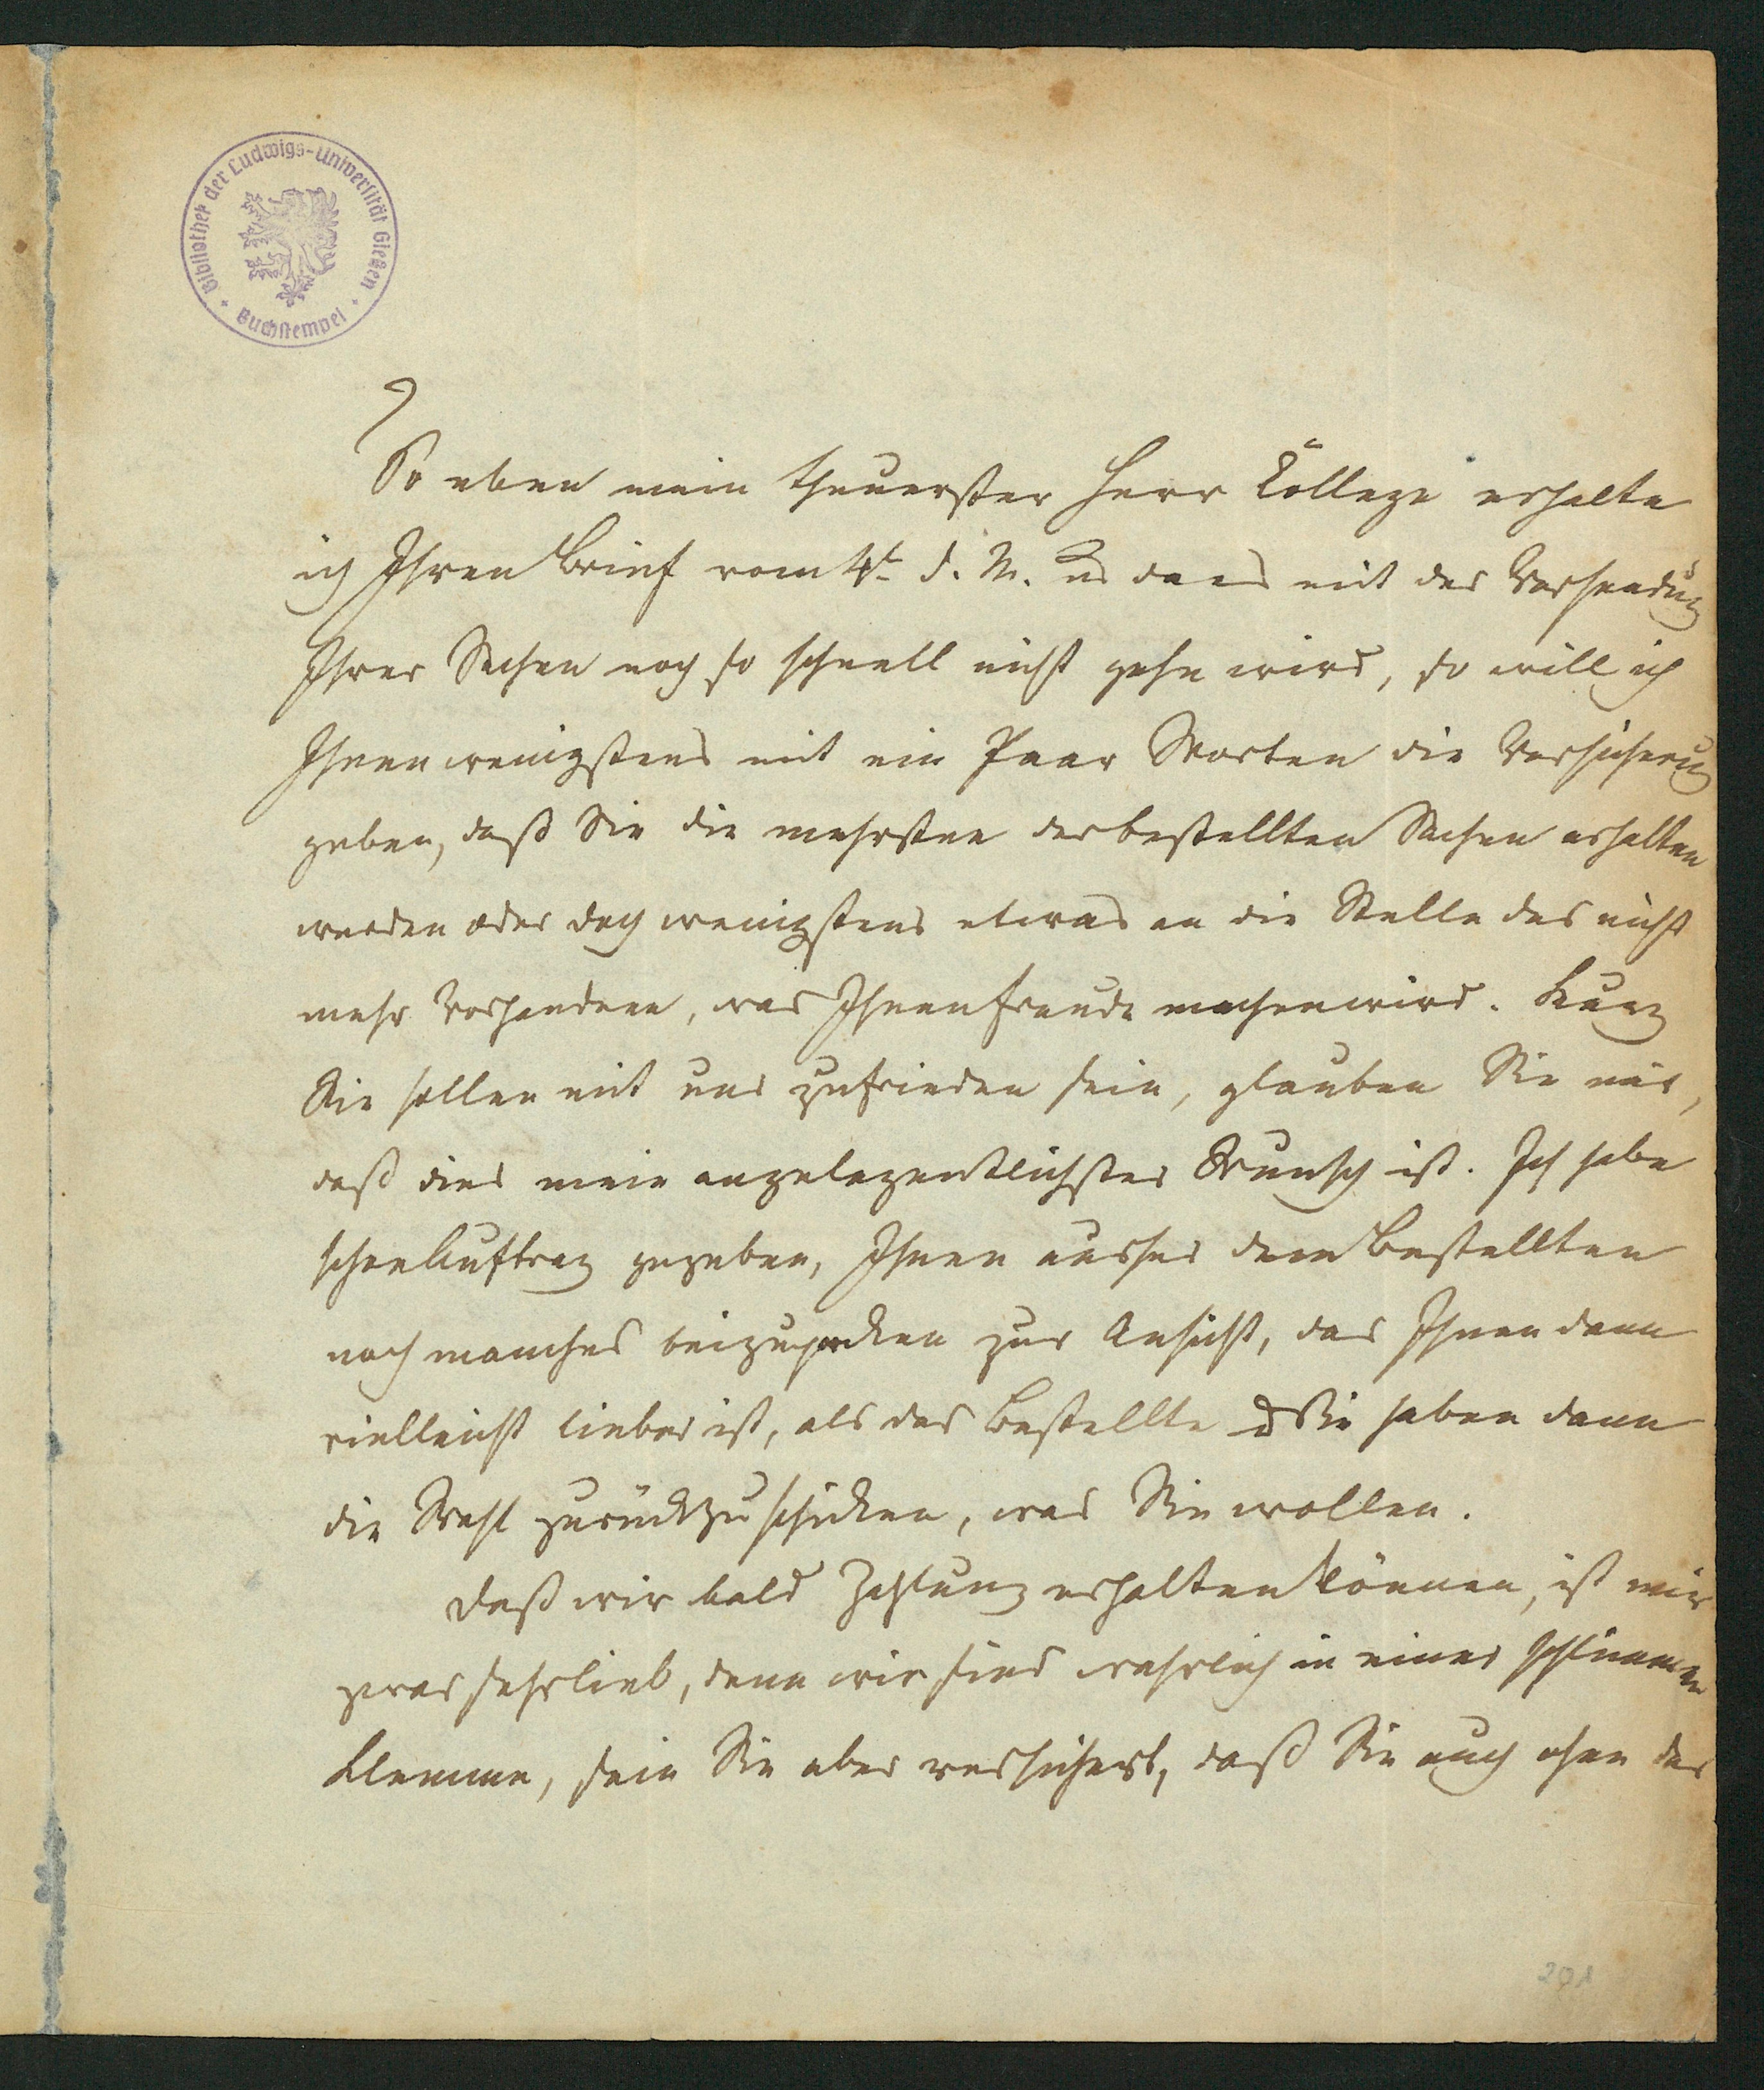 Bibliothek der Ludwigs-Universität Gießen
Buchstempel
So eben mein theuerster Herr College erhalte
ich Ihren Brief vom 4t d. M. u da es mit der Versendung
Ihrer Sachen noch so schnell nicht gehn wird, so will ich
Ihnen wenigstens mit ein Paar Worten die Versicherung
geben, daß Sie die mehrsten der bestellten Sachen erhalten
werden oder doch wenigstens etwas an die Stelle des nicht
mehr Vorhandnen, was Ihnen Freude machen wird. Kurz
Sie sollen mit uns zufrieden sein, glauben Sie mir,
daß dies mein angelegentlichster Wunsch ist. Ich habe
schon Auftrag gegeben, Ihnen ausser dem Bestellten
noch manches beizupacken zur Ansicht, das Ihnen dann
vielleicht lieber ist, als das Bestellte u Sie haben dann
die Wahl zurückzuschicken, was Sie wollen.
Daß wir bald Zahlung erhalten können, ist mir
zwar sehr lieb, denn wir sind wahrlich in einer schlimmen
Klemme, sein Sie aber versichert, daß Sie auch ohne das
201